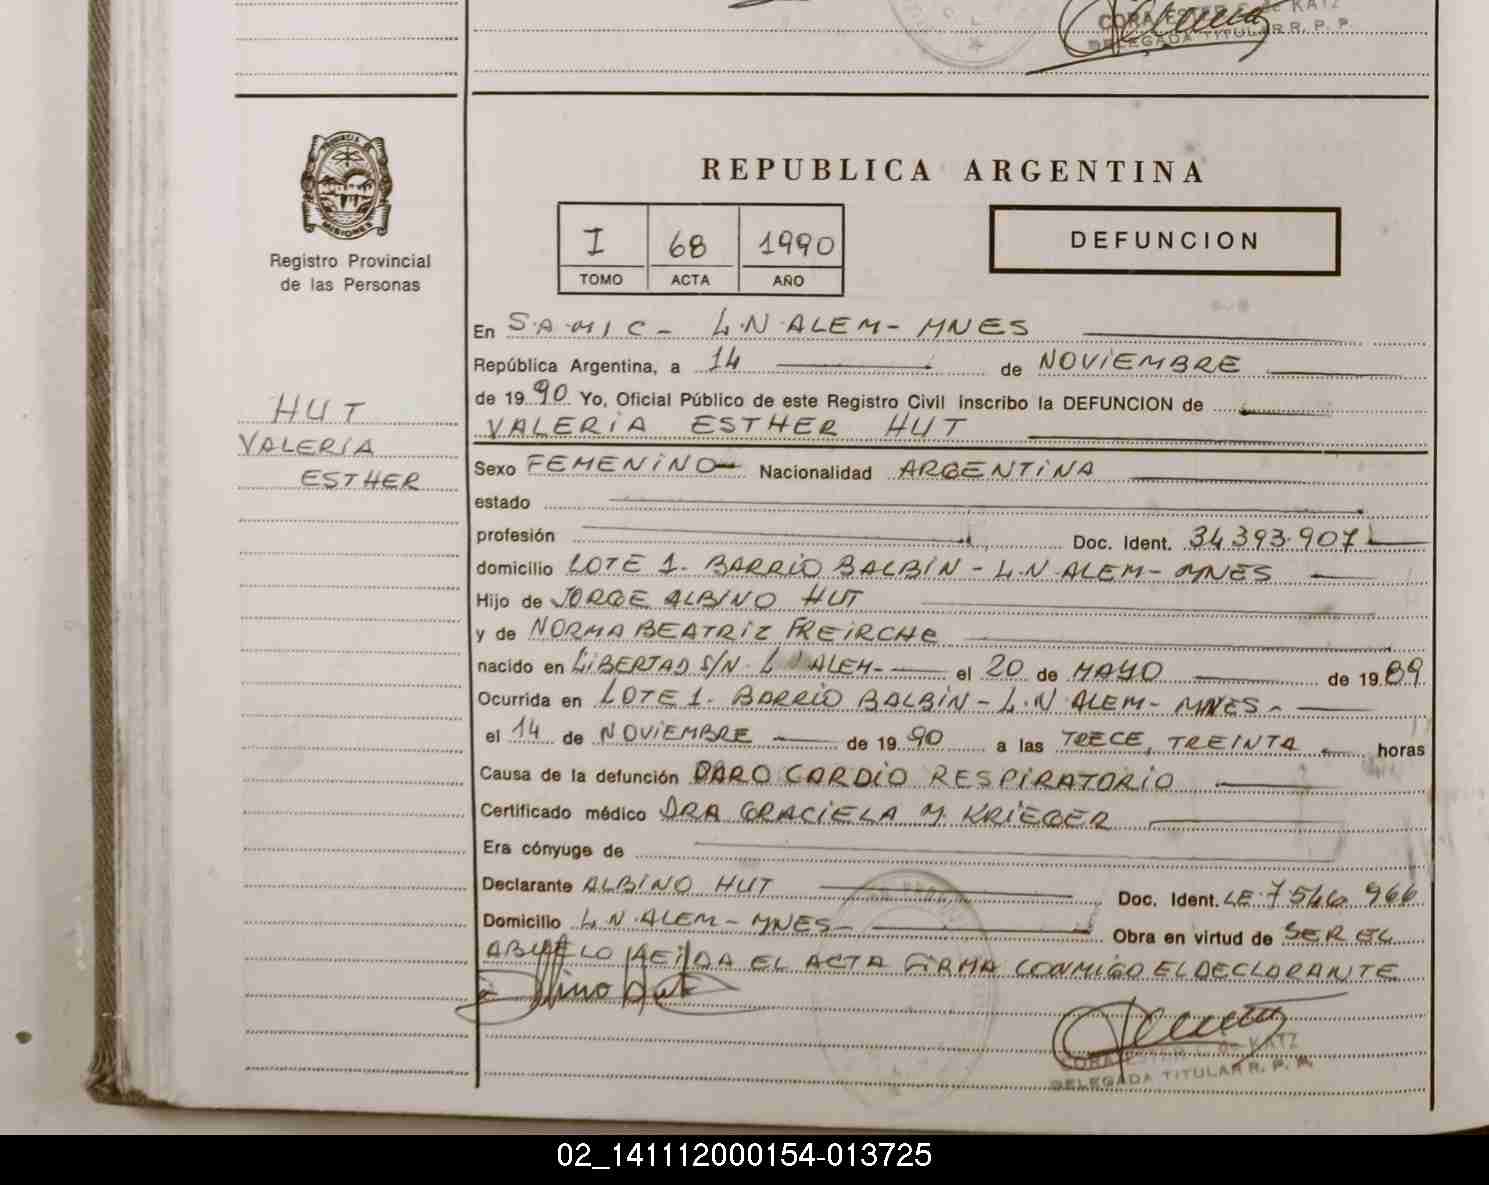 CORA ESTER
KATZ
DELEGADA TITULAR R. P. P.
PROVINCIA DE
MISIONES
Registro Provincial
de las Personas
HUT
VALERIA
ESTHER
REPUBLICA ARGENTINA
I 68 1990
TOMO ACTA AÑO
DEFUNCION
En S.A.M.I.C- L.N.ALEM- MNES
República Argentina, a 14 de NOVIEMBRE
de 19 90 Yo, Oficial Público de este Registro Civil inscribo la DEFUNCION de
VALERIA ESTHER HUT
Sexo FEMENINO Nacionalidad ARGENTINA
estado
profesión Doc. Ident. 34.393.907
domicilio LOTE 1. BARRIO BALBIN - L.N.ALEM- MNES
Hijo de JORGE ALBINO HUT
y de NORMA BEATRIZ FREIRCHE
nacido en LIBERTAD S/N. L N ALEM- el 20 de MAYO de 19 89
Ocurrida en LOTE 1. BARRIO BALBIN - L.N.ALEM- MNES-
el 14 de NOVIEMBRE de 19 90 a las TRECE, TREINTA horas
Causa de la defunción PARO CARDIO RESPIRATORIO
Certificado médico DRA GRACIELA M. KRIEGER
Era cónyuge de
Declarante ALBINO HUT Doc. Ident. LE.7.544.966
Domicilio L.N.ALEM- MNES- Obra en virtud de SER EL
ABUELO LEIDA EL ACTA FIRMA CONMIGO EL DECLARANTE
Albino Hut
CORA ESTER E. de KATZ
DELEGADA TITULAR R. P. P.
02_141112000154-013725